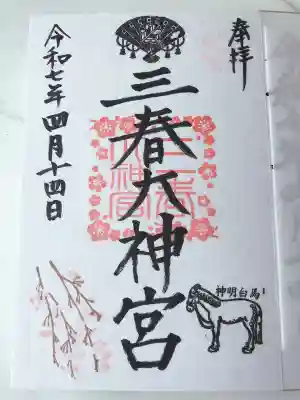 奉拝
三春大神宮
三春
神宮
令和七年四月十四日
神明白馬